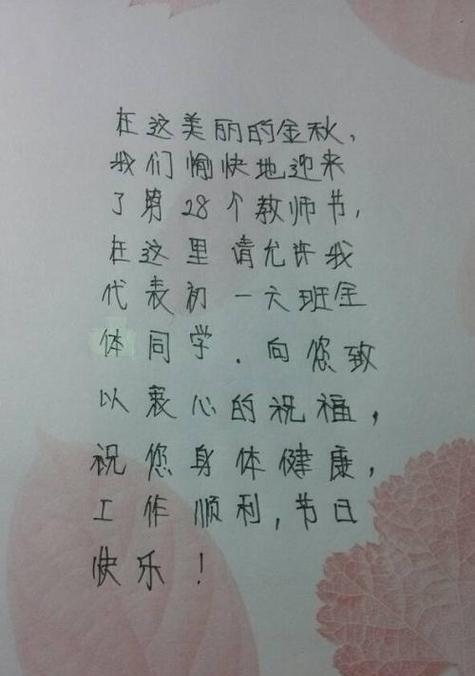 在这美丽的金秋,
我们愉快地迎来
了第28个教师节,
在这里 请允许我
代表初一六班全
体同学.向您致
以衷心的祝福,
祝您身体健康,
工作顺利,节日
快乐!